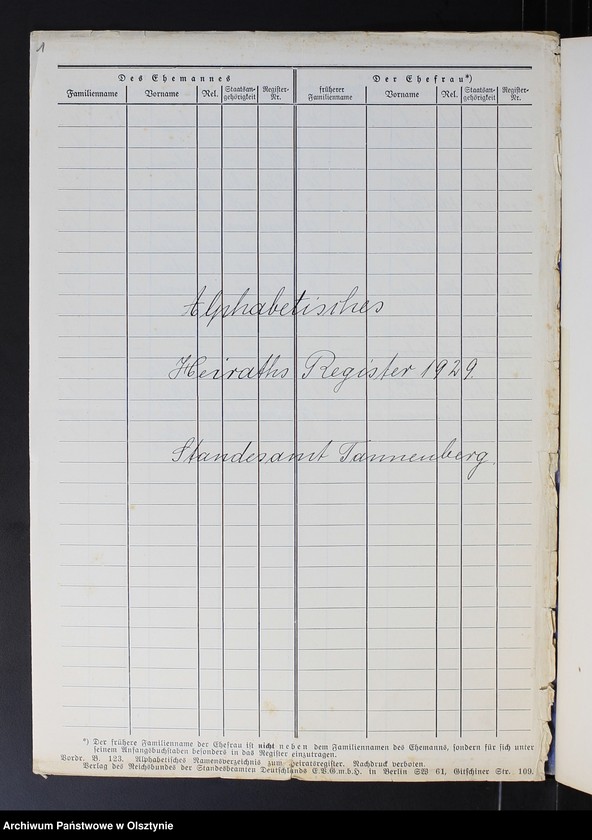 1
Des Ehemannes
Der Ehefrau*)
Familienname Vorname Rel. Staatsan-gehörigkeit Register-Nr. früherer Familienname Vorname Rel. Staatsan-gehörigkeit Register-Nr.
Alphabetisches
Heiraths Register 1929.
Standesamt Tannenberg.
*) Der frühere Familienname der Ehefrau ist nicht neben dem Familiennamen des Ehemanns, sondern für sich unter
seinem Anfangsbuchstaben besonders in das Register einzutragen.
Vordr. B. 123. Alphabetisches Namensverzeichnis zum Heiratsregister. Nachdruck verboten.
Verlag des Reichsbundes der Standesbeamten Deutschlands E.V.G.m.b.H. in Berlin SW 61, Gitschiner Str. 109.
Archiwum Państwowe w Olsztynie